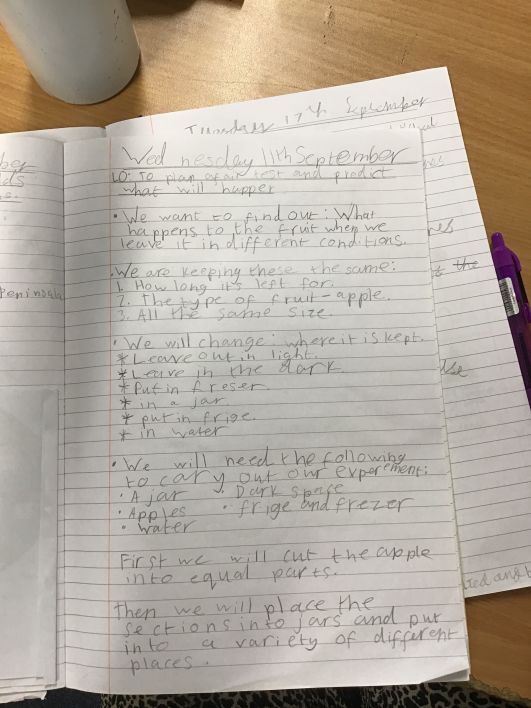 Tuesday 17th September
Wednesday 11th September
LO: To plan a fair test and predict
what will happen
• We want to find out: What
happens to the fruit when we
leave it in different conditions.
• We are keeping these the same:
1. How long it's left for.
2. The type of fruit - apple.
3. All the same size.
• We will change: where it is kept.
* Leave out in light.
* Leave in the dark
* Put in freser
* in a jar
* put in frige.
* in water
• We will need the following
to cary out our experement:
• A jar • Dark space
• Apples • frige and frezer
• water
First we will cut the apple
into equal parts.
Then we will place the
sections into jars and put
into a variety of different
places.